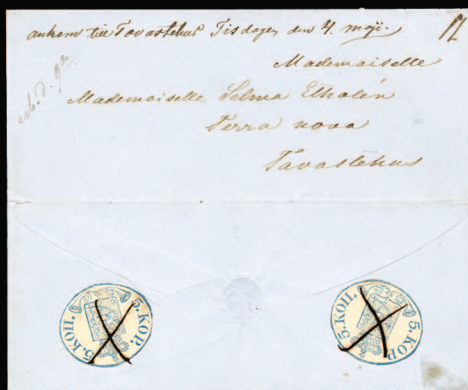 ankom till Tavastehus Tisdagen den 4 maji.
Mademoiselle
Mademoiselle Selma Elholén
Terra nova
Tavastehus
5 КОП. 5 KOP.
5 КОП. 5 KOP.